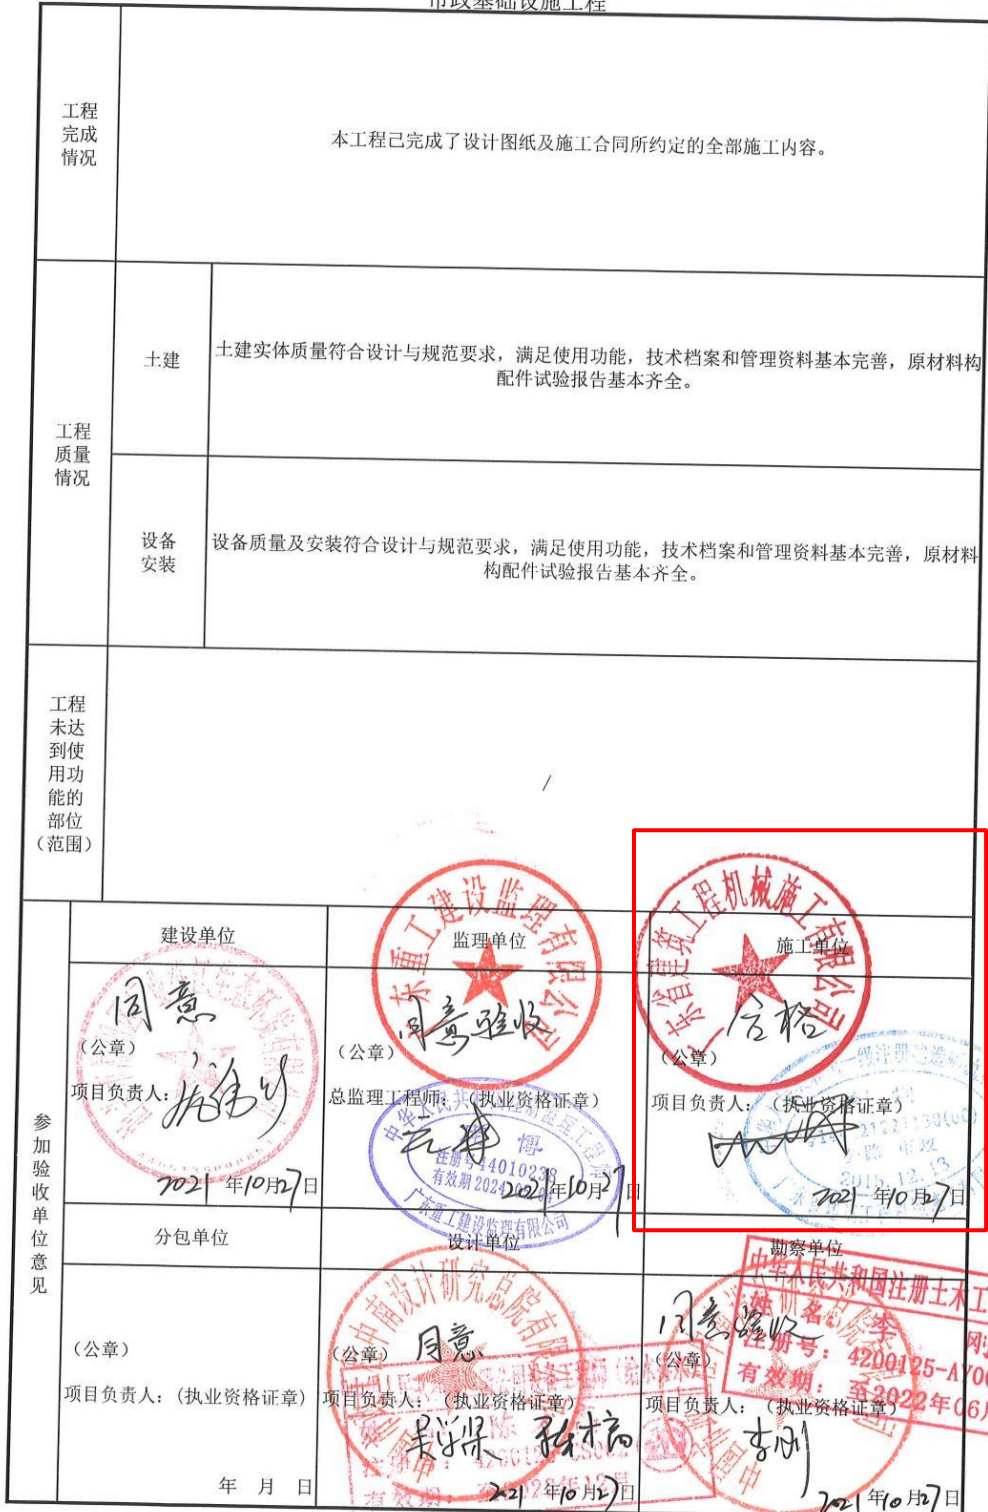 市政基础设施工程
工程
完成
情况
本工程已完成了设计图纸及施工合同所约定的全部施工内容。
工程
质量
情况
土建
土建实体质量符合设计与规范要求，满足使用功能，技术档案和管理资料基本完善，原材料构
配件试验报告基本齐全。
设备
安装
设备质量及安装符合设计与规范要求，满足使用功能，技术档案和管理资料基本完善，原材料
构配件试验报告基本齐全。
工程
未达
到使
用功
能的
部位
（范围）
/
参加验收单位意见
建设单位
同意
（公章）
项目负责人：
2021年10月27日
监理单位
广东重工建设监理有限公司
同意验收
（公章）
总监理工程师：（执业资格证章）
注册号44010238
有效期2024
广东重工建设监理有限公司
2021年10月27日
施工单位
广东省建筑工程机械施工有限公司
合格
（公章）
项目负责人：（执业资格证章）
2015.12.23
2021年10月27日
分包单位
（公章）
项目负责人：（执业资格证章）
年 月 日
设计单位
中南设计研究总院有限
同意
（公章）
项目负责人：（执业资格证章）
2021年10月27日
勘察单位
中华人民共和国注册土木工
姓 名：李
注册号：4200125-AY00
有效期：至2022年06月
同意验收
（公章）
项目负责人：（执业资格证章）
李刚
2021年10月27日